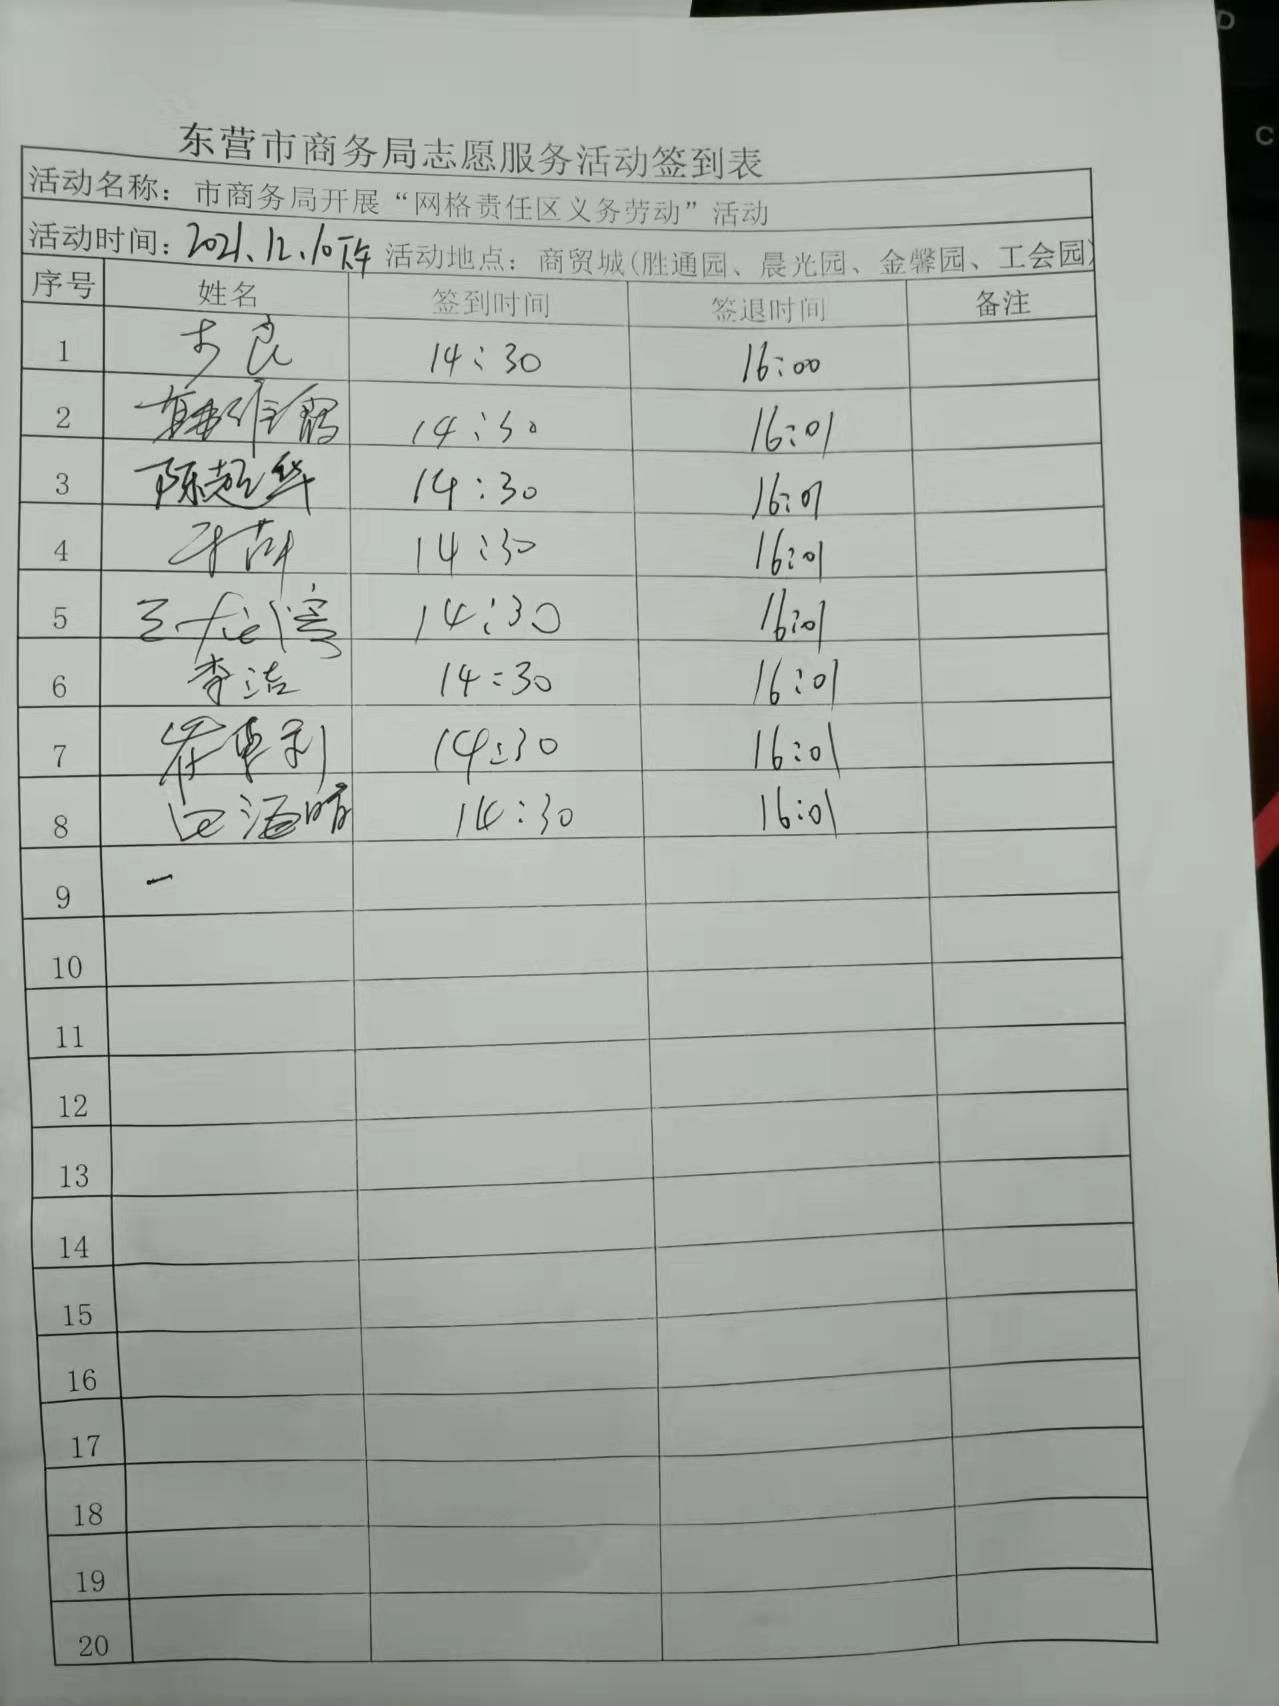 东营市商务局志愿服务活动签到表
活动名称：市商务局开展“网格责任区义务劳动”活动
活动时间：2021.12.10下午 活动地点：商贸城(胜通园、晨光园、金馨园、工会园)
序号 姓名 签到时间 签退时间 备注
1 14:30 16:00
2 14:30 16:01
3 陈超华 14:30 16:01
4 14:30 16:01
5 14:30 16:01
6 李洁 14:30 16:01
7 14:30 16:01
8 14:30 16:01
9
10
11
12
13
14
15
16
17
18
19
20
D
C